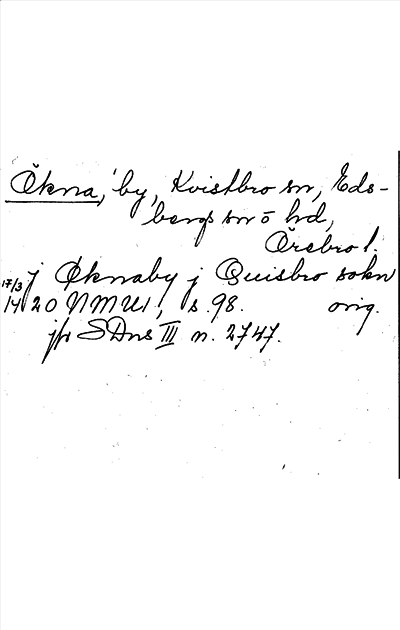 Ökna, by, Kvistbro sn, Eds-
bergs sn ö hd,
Örebro l.
j Øknaby j Quisbro sokn
17/3 1420 NMU1, s. 98. orig.
jfr SDns III n. 2747.